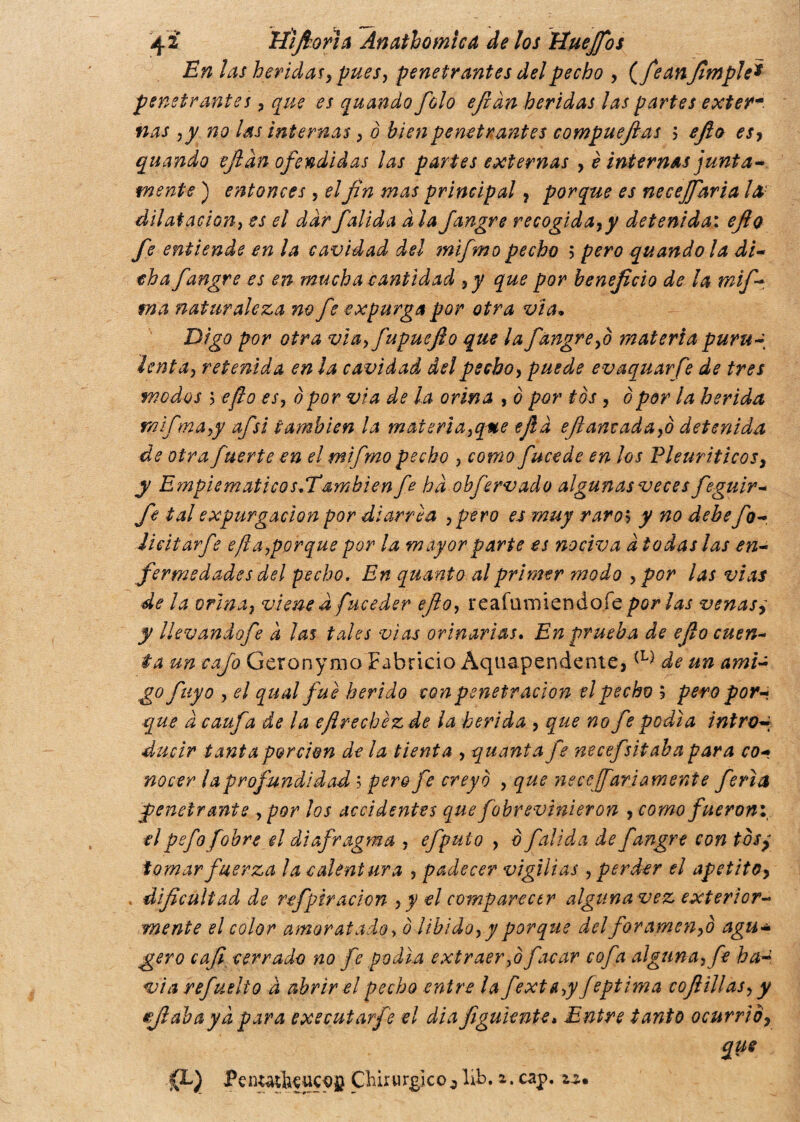 42 Hiſtoria Anathomica de los Hueſſos
En las heridas, pues, penetrantes del pecho , (ſean ſimples
penetrantes , que es quando ſolo eſtàn heridas las partes exter-
nas , y no las internas , ò bien penetrantes compueſtas ; eſto es,
quando eſtàn ofendidas las partes externas , è internas junta-
mente ) entonces , el fin mas principal , porque es neceſſaria la
dilatacion, es el dàr ſalida à la ſangre recogida, y detenida: eſto
ſe entiende en la cavidad del miſmo pecho ; pero quando la di-
cha ſangre es en mucha cantidad , y que por beneficio de la miſ-
ma naturaleza no ſe expurga por otra via.
Digo por otra via, ſupueſto que la ſangre,ò materia puru-
lenta, retenida en la cavidad del pecho, puede evaquarſe de tres
modos ; eſto es, ò por via de la orina , ò por tòs , ò por la herida
miſma,y aſsi tambien la materia,que eſtà eſtancada,ò detenida
de otra ſuerte en el miſmo pecho , como ſucede en los Pleuriticos,
y Empiematicos.Tambien ſe hà obſervado algunas veces ſeguir-
ſe tal expurgacion por diarrèa , pero es muy raro; y no debe ſo-
licitàrſe eſta,porque por la mayor parte es nociva à todas las en-
fermedades del pecho. En quanto al primer modo , por las vias
de la orina, viene à ſuceder eſto, reaſumiendoſe por las venas,
y llevandoſe à las tales vias orinarias. En prueba de eſto cuen-
ta un caſo Geronymo Fabricio Aquapendente, (L) de un ami-
go ſuyo , el qual fuè herido con penetracion el pecho ; pero por-
que à cauſa de la eſtrechèz de la herida , que no ſe podìa intro-
ducir tanta porcion de la tienta , quanta ſe neceſsitaba para co-
nocer la profundidad ; pero ſe creyò , que neceſſariamente ſerìa
penetrante , por los accidentes que ſobrevinieron , como fueron:
el peſo ſobre el diafragma , eſputo , ò ſalida de ſangre con tòs,
tomar fuerza la calentura , padecer vigilias , perder el apetito,
dificultad de reſpiracion , y el comparecer alguna vez exterior-
mente el color amoratado, ò libido, y porque del foramen,ò agu-
gero caſi cerrado no ſe podìa extraer,ò ſacar coſa alguna, ſe ha-
via reſuelto à abrir el pecho entre la ſexta,y ſeptima coſtillas, y
eſtaba yà para executarſe el dia ſiguiente. Entre tanto ocurriò,
que
(L) Pentatheucog Chirurgico, lib. 2. cap. 22.